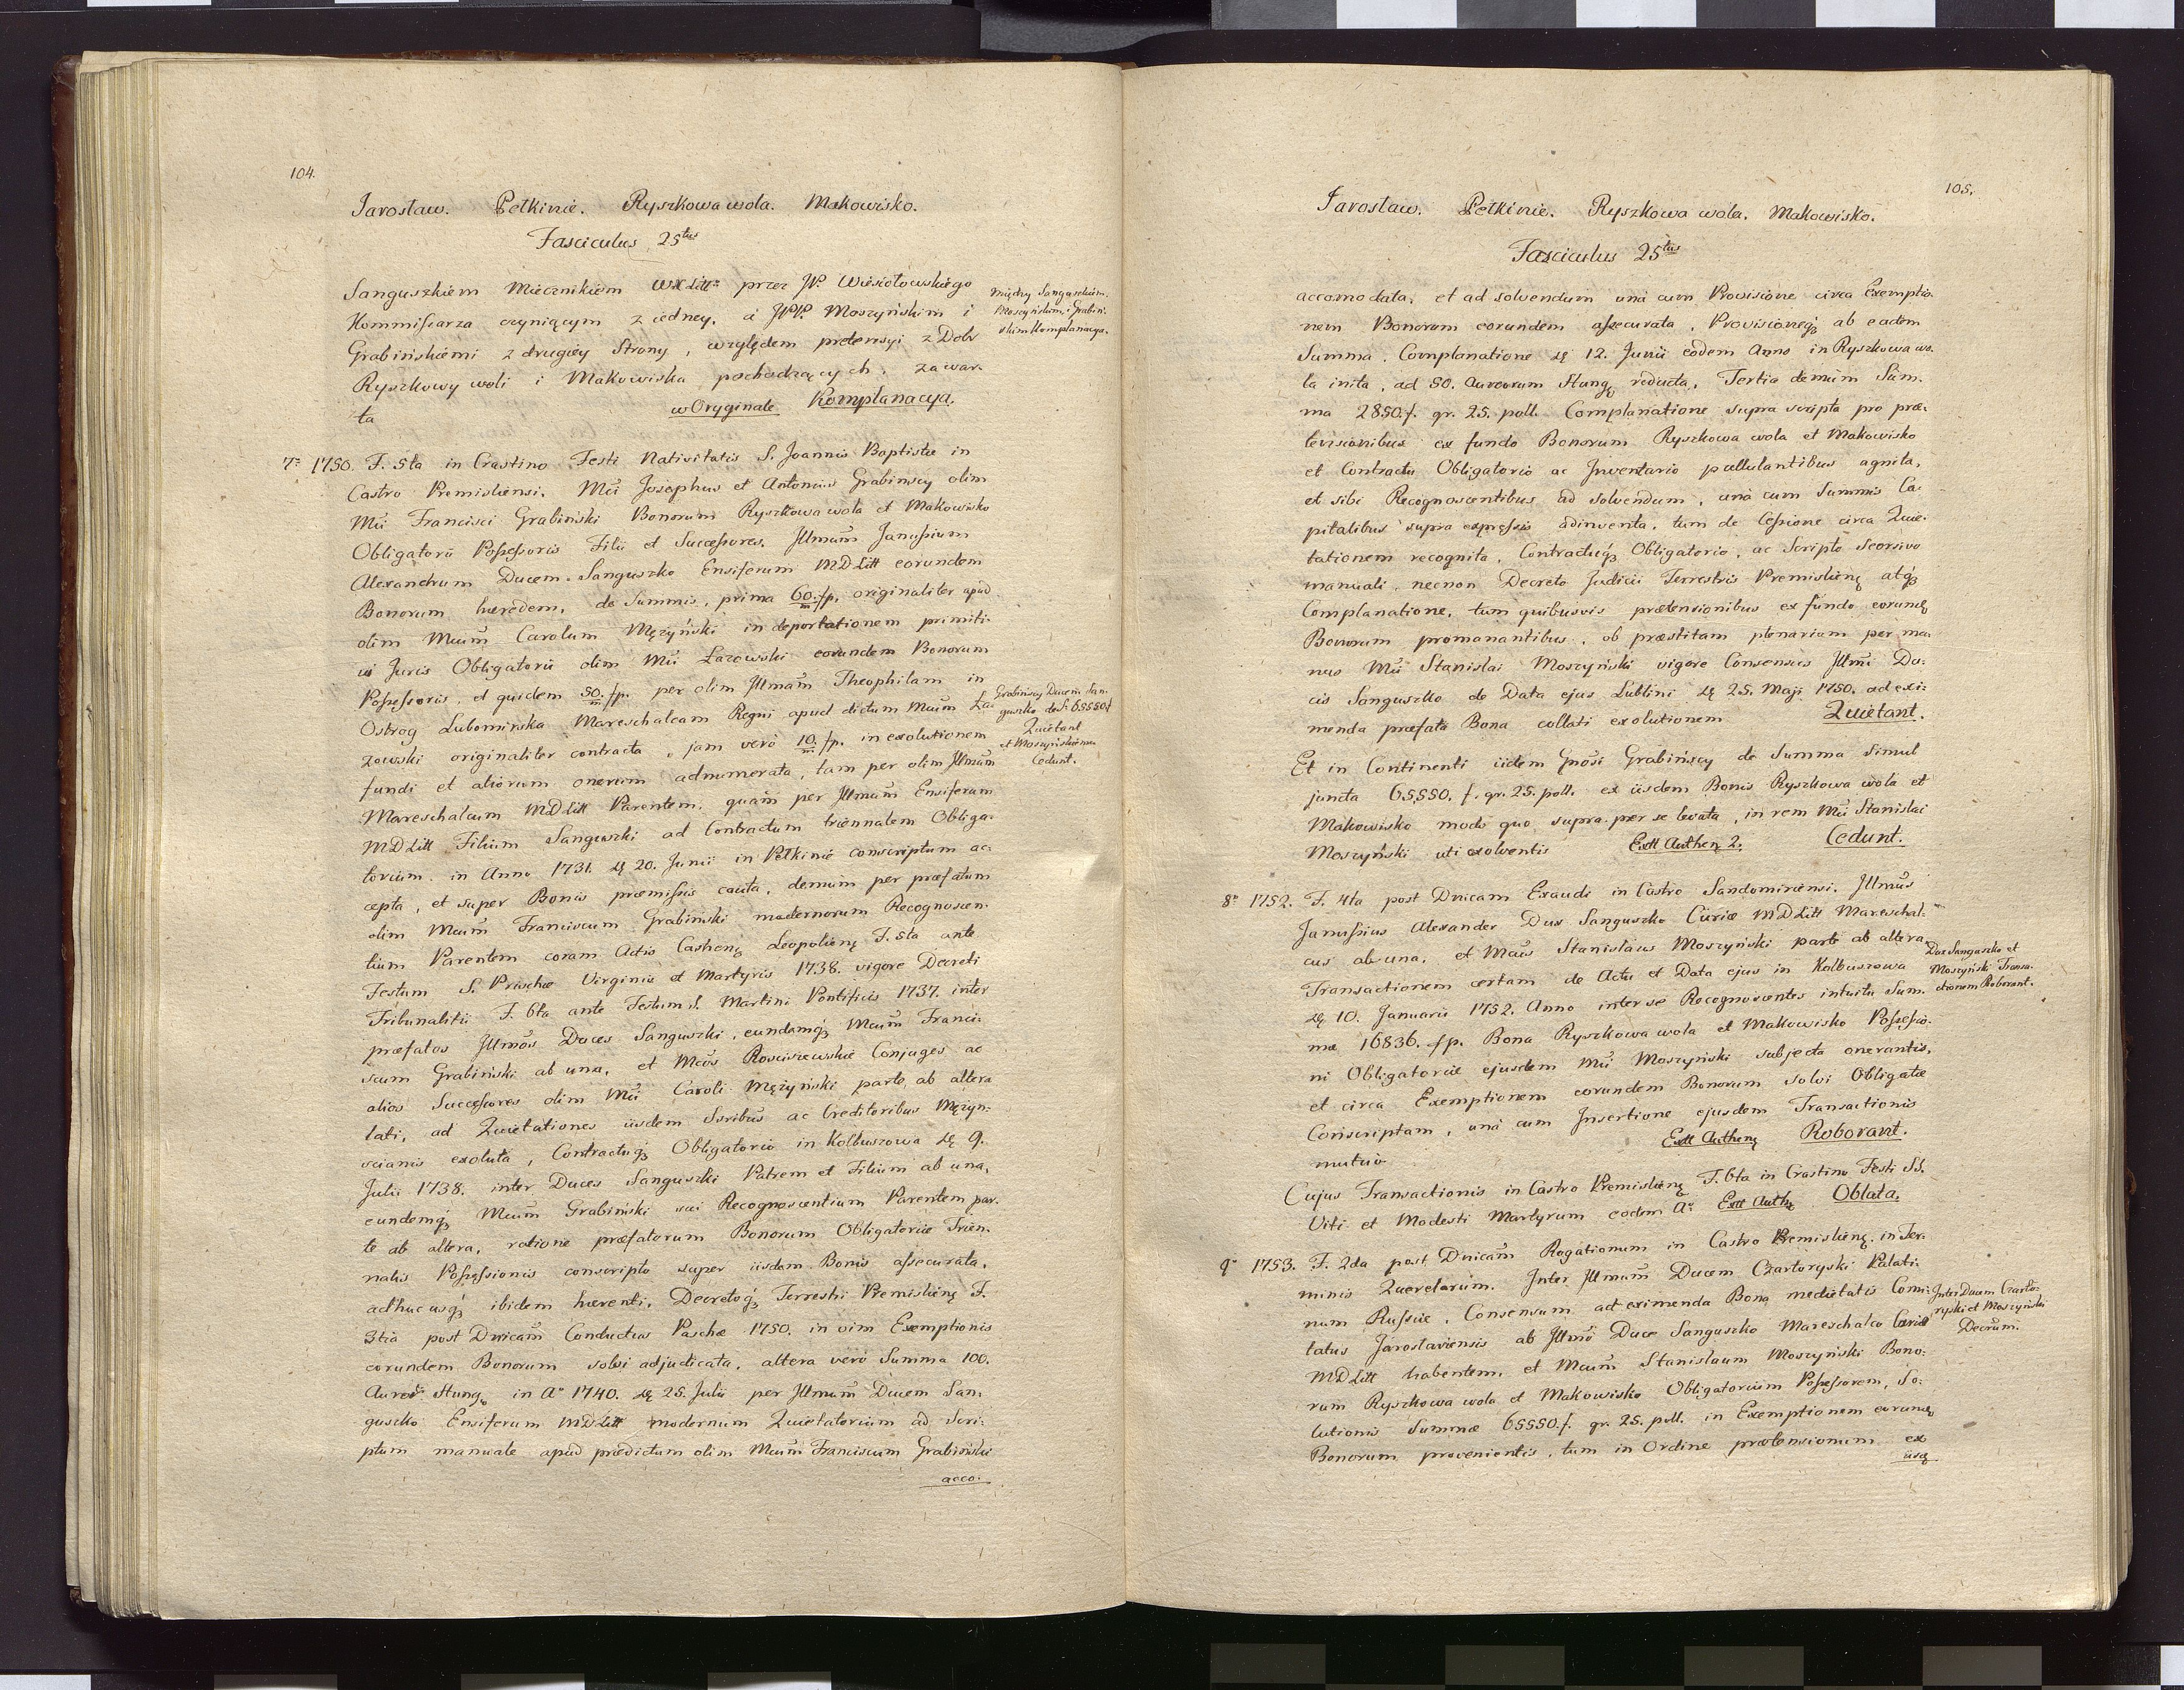 104.
Jarosław. Pełkinie. Ryszkowa wola. Makowisko.
Fasciculus 25tus
Sanguszkiem Miecznikiem WXLitt przez JP. Wiesiołowskiego
Kommissarza czyniącym z iedney, a JPP. Moszyńskim i
Grabińskiemi z drugiey Strony, względem pretensyi z Dobr
Ryszkowy woli i Makowiska pochodzących, zawar-
ta w Oryginale Komplanacya.
między Sanguszkiem,
Moszyńskim, i Grabiń-
skim Komplanacya.
7º 1750. F. 5ta in Crastino Festi Nativitatis S. Joannis Baptistæ in
Castro Premisliensi. Mci Josephus et Antonius Grabinscy olim
Mci Francisci Grabiński Bonorum Ryszkowa wola et Makowisko
Obligatorii Possessoris Filii et Successores. Jllmum Janussium
Alexandrum Ducem Sanguszko Ensiferum MDLitt eorundem
Bonorum hæredem, de Summis, prima 60/m fp. originaliter apud
olim Mcum Carolum Mężyński in deportationem primiti-
vi Juris Obligatorii olim Mci Łazowski eorundem Bonorum
Possessoris, et quidem 50/m fp. per olim Jllmam Theophilam in
Ostrog Lubomirska Mareschalcam Regni apud dictum Mcum Ła-
zowski originaliter contracta, jam verò 10/m fp. in exolutionem
fundi et aliorum onerum adnumerata, tam per olim Jllmum
Mareschalcum MDLitt Parentem, quam per Jllmum Ensiferum
MDLitt Filium Sanguszki ad Contractum triennalem Obliga-
torium in Anno 1731. dę 20. Junii in Pełkinie conscriptum ac-
cepta, et super Bonis præmissis cauta, demum per præfatum
olim Mcum Franciscum Grabiński modernorum Recognoscen-
tium Parentem coram Actis Castrenę Leopolienę F. 5ta ante
Festum S. Priscæ Virginis et Martyris 1738. vigore Decreti
Tribunalitii F. 6ta ante Festum S. Martini Pontificis 1737. inter
præfatos Jllmos Duces Sanguszki, eundemqȝ Mcum Franci-
scum Grabiński ab una, et Mcos Rosciszewskie Conjuges ac
alios Successores olim Mci Caroli Mężyński parte ab altera
lati, ad Quietationes iisdem Ssoribus ac Creditoribus Mężyn-
scianis exoluta, Contractuqȝ Obligatorio in Kolbuszowa dę 9.
Julii 1738. inter Duces Sanguszki Patrem et Filium ab una,
eundemqȝ Mcum Grabiński sui Recognoscentium Parentem par-
te ab altera, ratione præfatorum Bonorum Obligatoriæ Trien-
nalis Possessionis conscripto super iisdem Bonis assecurata,
adhuc usqȝ ibidem hærenti, Decretoqȝ Terrestri Premislienę F.
3tia post Dnicam Conductus Paschæ 1750. in vim Exemptionis
eorundem Bonorum solvi adjudicata, altera verò Summa 100.
Aureor Hungę in Aº 1740. dę 25. Julii per Jllmum Ducem San-
guszko Ensiferum MDLitt modernum Quietatorium ad Scri-
ptum manuale apud prædictum olim Mcum Franciscum Grabiński
acco-
Grabinscy Ducem San-
guszko de S. 65550 f
Quietant
et Moszyńskiemu
Cedunt.
105.
Jarosław. Pełkinie. Ryszkowa wola. Makowisko.
Fasciculus 25tus
accomodata, et ad solvendum unà cum Provisione circa Exemptio-
nem Bonorum eorundem assecurata, Provisioneqȝ ab eadem
Summa, Complanatione dę 12. Junii eodem Anno in Ryszkowa wo-
la inita, ad 50. Aureorum Hungę reducta, Tertia demum Sum-
ma 2850. f. gr. 25. poll. Complanatione supra scripta pro præ-
tensionibus ex fundo Bonorum Ryszkowa wola et Makowisko
et Contractu Obligatorio ac Inventario pullulantibus agnita,
et sibi Recognoscentibus ad solvendum, unà cum Summis Ca-
pitalibus supra expressis adinventa, tum de Cessione circa Quie-
tationem recognita, Contractuqȝ Obligatorio, ac Scripto Seorsivo
manuali, necnon Decreto Judicii Terrestris Premislienę atqȝ
Complanatione, tum quibusvis prætensionibus ex fundo eorundę
Bonorum promanantibus, ob præstitam plenariam per ma-
nus Mci Stanislai Moszyński vigore Consensus Jllmi Du-
cis Sanguszko de Data ejus Lublini dę 25. Maji 1750. ad exi-
menda præfata Bona collati exolutionem Quietant.
Et in Continenti iidem Gnosi Grabińscy de Summa Simul
juncta 65,550. f. gr. 25. poll. ex iisdem Bonis Ryszkowa wola et
Makowisko modo quo supra per se levata, in rem Mci Stanislai
Moszyński uti exolventis Extt Authenę 2. Cedunt.
8º 1752. F. 4ta post Dnicam Exaudi in Castro Sandomiriensi. Jllmus
Janussius Alexander Dux Sanguszko Curiæ MDLitt Mareschal-
cus ab una, et Mcus Stanislaus Moszyński parte ab altera,
Transactionem certam de Actu et Data ejus in Kolbuszowa
dę 10. Januarii 1752. Anno inter se Recognoscentes intuitu Sum-
mæ 16836. fp. Bona Ryszkowa wola et Makowisko Possessio-
ni Obligatoriæ ejusdem Mci Moszyński subjecta onerantis,
et circa Exemptionem eorundem Bonorum solvi Obligatæ
Conscriptam, unà cum Insertione ejusdem Transactionis
mutuo Extt Authenę Roborant.
Dux Sanguszko et
Moszyński Transa-
ctionem Roborant.
Cujus Transactionis in Castro Premislienę F. 6ta in Crastino Festi SS.
Viti et Modesti Martyrum eodem Aº Extt Authę Oblata.
9º 1753. F. 2da post Dnicam Rogationum in Castro Premislienę. in Ter-
minis Querelarum. Inter Jllmum Ducem Czartoryski Palati-
num Russiæ, Consensum ad eximenda Bona medietatis Comi-
tatus Jaroslaviensis ab Jllmo Duce Sanguszko Mareschalco Curiæ
MDLitt habentem, et Mcum Stanislaum Moszyński Bono-
rum Ryszkowa wola et Makowisko Obligatorium Possessorem, So-
lutionis Summæ 65550. f. gr. 25. poll. in Exemptionem eorundę
Bonorum provenientis, tum in Ordine prætensionum ex
iisdę
Inter Ducem Czarto-
ryski et Moszyński
Decrum.